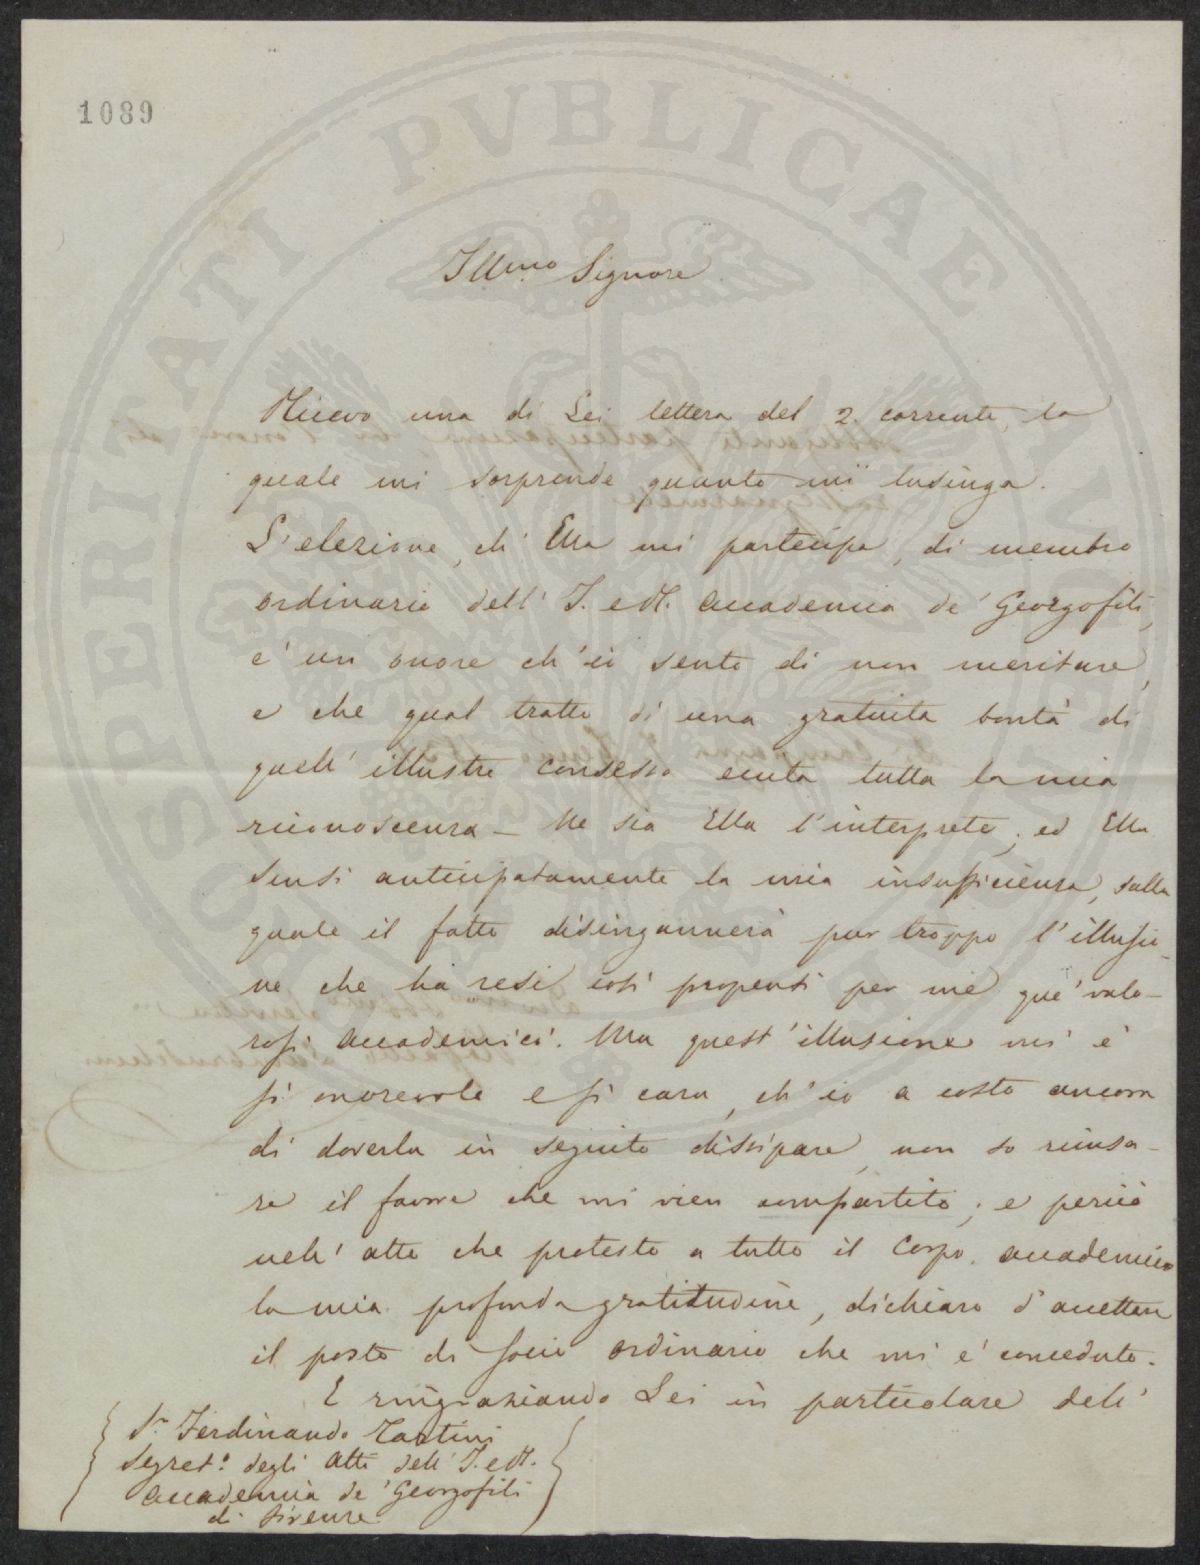 1089
PROSPERITATI PVBLICAE AVGENDAE
Illmo Signore
Ricevo una di Lei lettera del 2. corrente, la
quale mi sorprende quanto mi lusinga.
L'elezione, ch' Ella mi partecipa, di membro
ordinario dell' I. e R. Accademia de' Georgofili,
e' un onore ch' io sento di non meritare,
e che qual tratto di una gratuita bontà di
quell' illustre consesso eccita tutta la mia
riconoscenza – Ne sia Ella l'interprete, ed Ella
scusi anticipatamente la mia insufficienza, sulla
quale il fatto disingannerà pur troppo l'illusio-
ne che ha resi così propensi per me que' valo-
rosi Accademici. Ma quest' illusione mi è
sì onorevole e sì cara, ch' io a costo ancora
di doverla in seguito dissipare, non so ricusa-
re il favore che mi vien compartito; e perciò
nell' atto che protesto a tutto il Corpo accademico
la mia profonda gratitudine, dichiaro d' accettare
il posto di socio ordinario che mi è conceduto.
E ringraziando Lei in particolare dell'
Sr. Ferdinando Tartini
Segret.o degli Atti dell' I. e R.
Accademia de' Georgofili
di Firenze